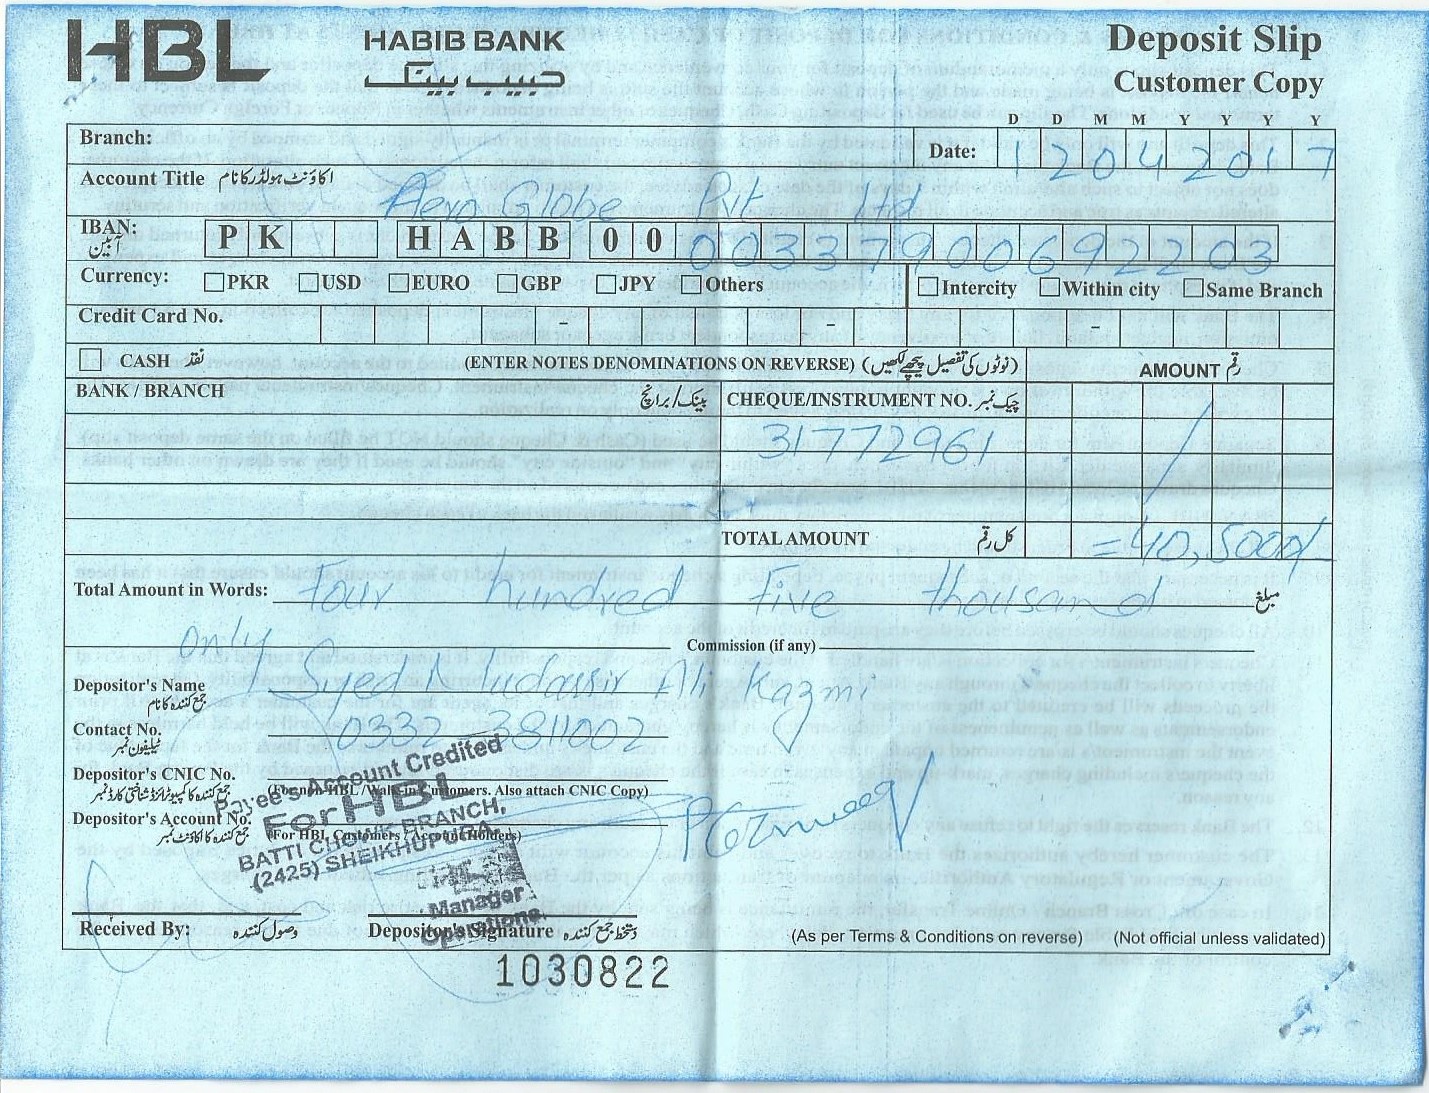 HBL HABIB BANK
حبیب بینک
Deposit Slip
Customer Copy
Branch:
D D M M Y Y Y Y
Date: 12042017
Account Title اکاؤنٹ ہولڈر کا نام Aero Globe Pvt Ltd
IBAN: آئبین PK HABB 00 0033790069 2203
Currency: PKR USD EURO GBP JPY Others Intercity Within city Same Branch
Credit Card No. - - -
CASH نقد (ENTER NOTES DENOMINATIONS ON REVERSE) (نوٹوں کی تفصیل پیچھے لکھیں) AMOUNT رقم
BANK / BRANCH بینک/برانچ CHEQUE/INSTRUMENT NO. چیک نمبر
31772961
TOTAL AMOUNT کل رقم =40,5000/
Total Amount in Words: Four hundred Five thousand مبلغ
only Commission (if any)
Depositor's Name Syed Mudassir Ali Kazmi
جمع کنندہ کا نام
Contact No. 0332-3811002
ٹیلیفون نمبر
Depositor's CNIC No. (For non-HBL/Walk-in Customers. Also attach CNIC Copy)
جمع کنندہ کا کمپیوٹرائزڈ شناختی کارڈ نمبر
Depositor's Account No. (For HBL Customers / Account Holders)
جمع کنندہ کا اکاؤنٹ نمبر
Payee's Account Credited
For HBL
BATTI CHOWK BRANCH,
(2425) SHEIKHUPURA.
Manager
Operations
Received By: وصول کنندہ Depositor's Signature دستخط جمع کنندہ (As per Terms & Conditions on reverse) (Not official unless validated)
1030822